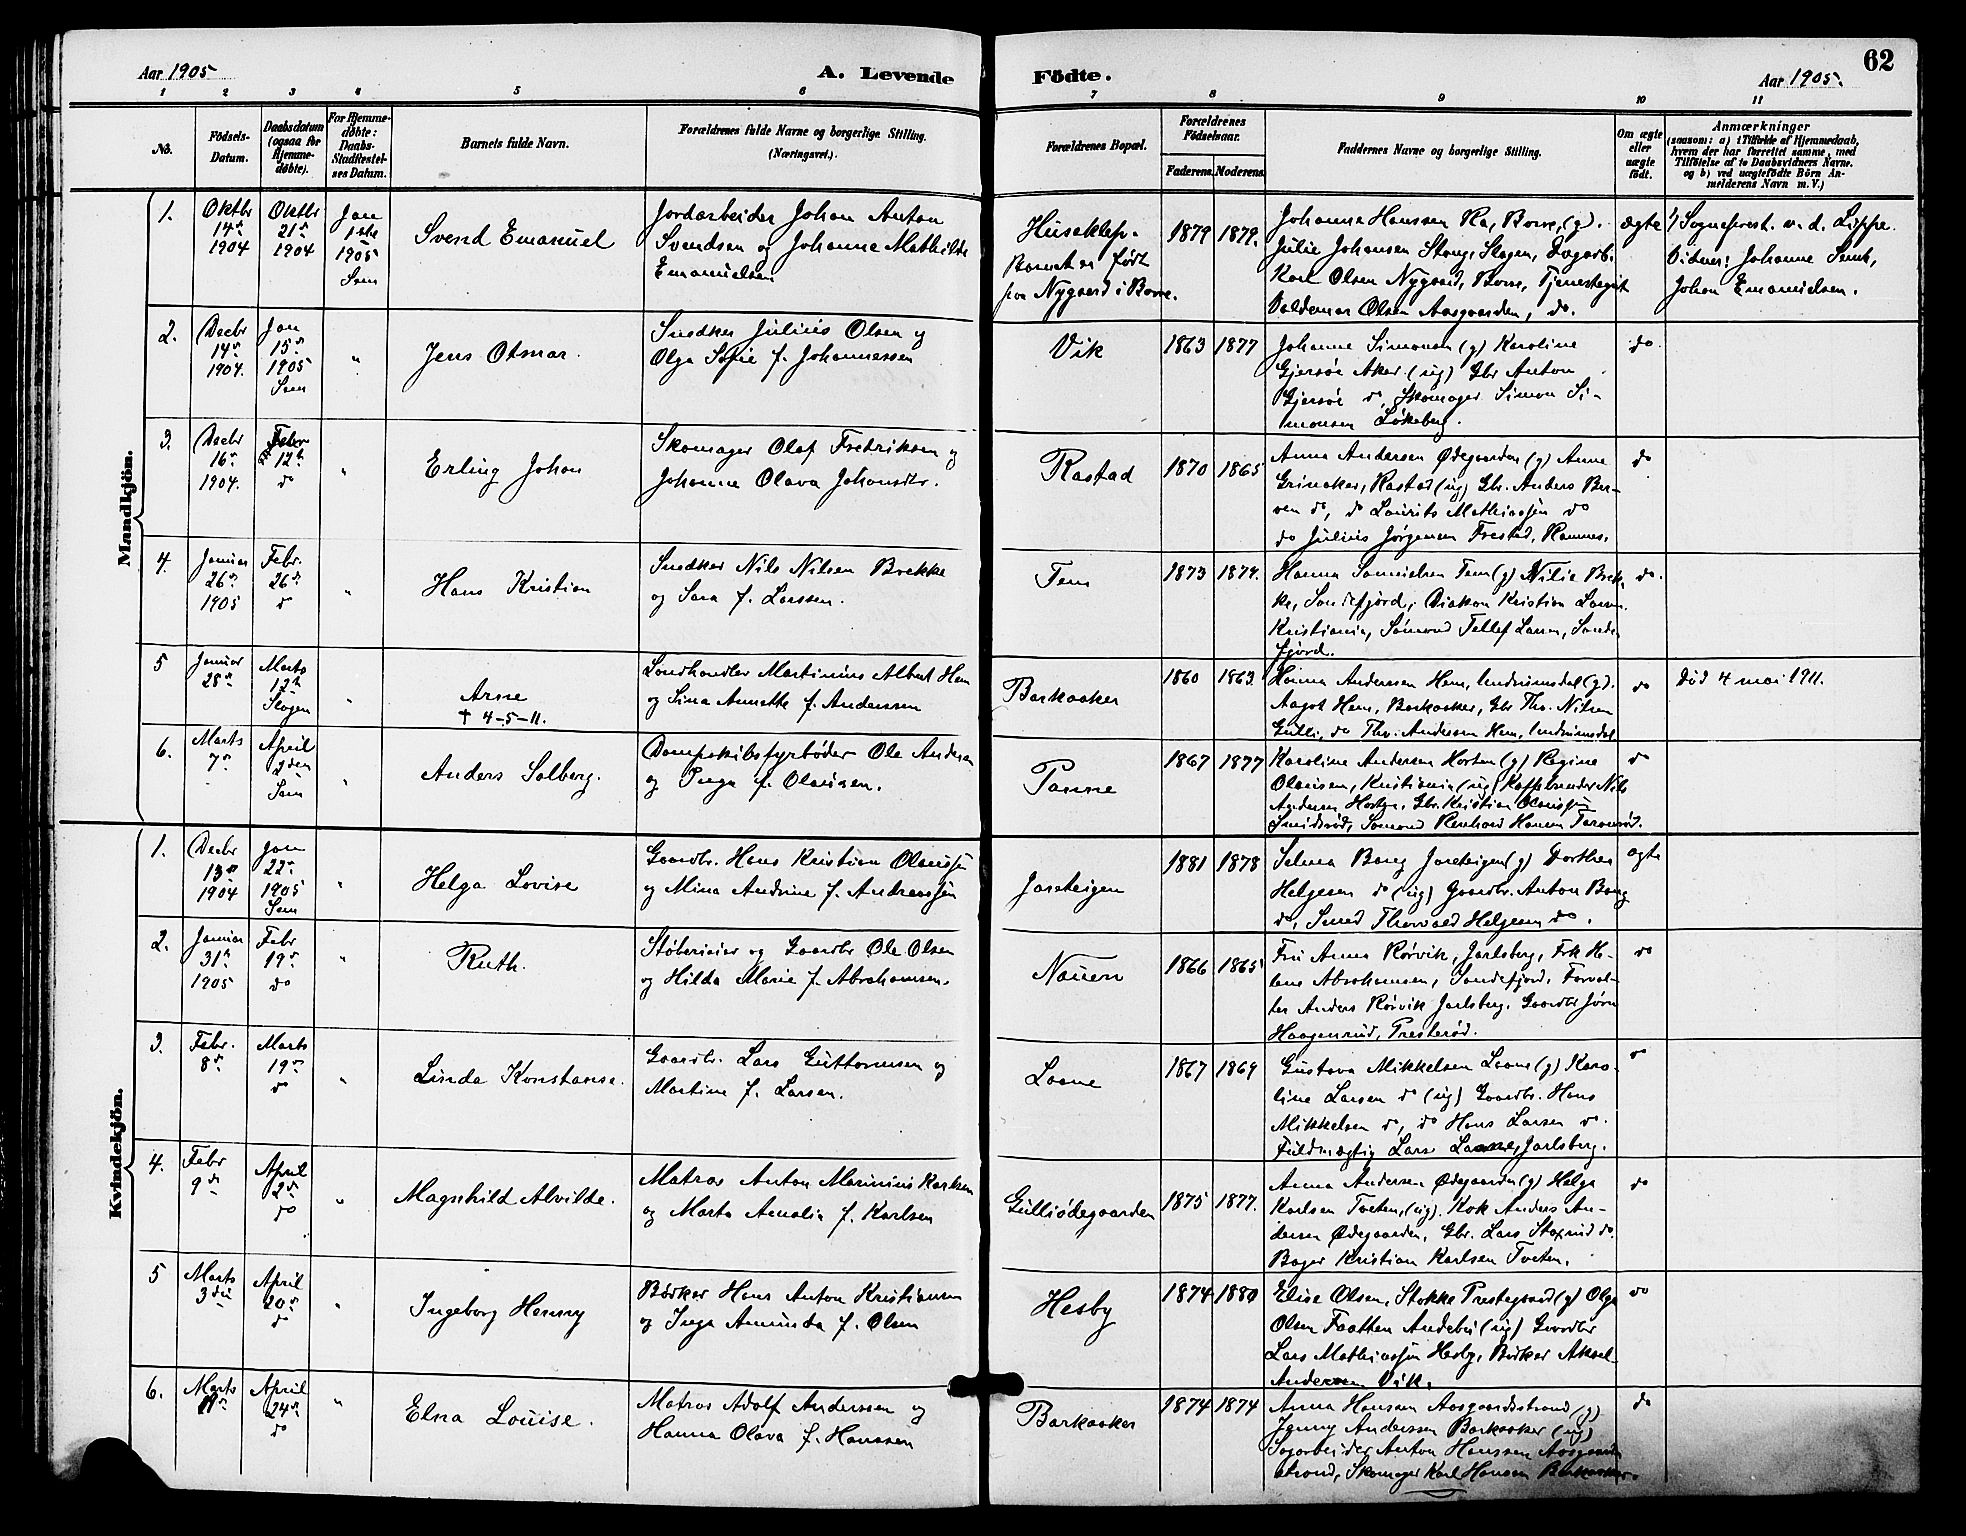 Aar 1905
A. Levende
Födte.
Aar 1905.
62
1 2 3 4 5 6 7 8 9 10 11
No.
Födsels-
Datum.
Daabsdatum
(ogsaa for
Hjemme-
döbte).
For Hjemme-
döbte:
Daabs-
Stadfæstel-
ses Datum.
Barnets fulde Navn.
Forældrenes fulde Navne og borgerlige Stilling.
(Næringsvei.)
Forældrenes Bopæl.
Forældrenes
Födselsaar.
Faderens. Moderens.
Faddernes Navne og borgerlige Stilling.
Om ægte
eller
uægte
födt.
Anmærkninger
(saasom: a) i Tilfælde af Hjemmedaab,
hvem der har forrettet samme, med
Tilföielse af to Daabsvidners Navne.
og b) ved uægtefödte Börn An-
melderens Navn m. V.)
Mandkjön.
1.
Oktbr
14de
1904
Oktbr
21de
1904
Jan
1ste
1905
Sem
Svend Emanuel
Jordarbeider Johan Anton
Svendsen og Johanne Mathilde
Emanuelsen
Huseklep.
Barnet er født
paa Nygaard i Borre.
1879 1879.
Johanne Hanssen Ra, Borre, (g).
Julie Johansen Stang, Slagen, Dagarb.
Karl Olsen Nygaard, Borre, Tjenestegut
Valdemar Olsen Aasgaarden, do.
ægte
1) Sogneprest v. d. Lippe.
Vidner: Johanne Semb,
Johan Emanuelsen.
2.
Decbr
14de
1904.
Jan
15de
1905
Sem
"
Jens Otmar.
Snedker Julius Olsen og
Olga Sofie f. Johannessen
Vik
1863 1877
Johanne Simonsen (g) Karoline
Gjersøe Aker (ug) Gbr Anton
Gjersøe do, Skomager Simon Si-
monsen Løkeberg.
do
3.
Decbr
16de
1904.
Febr
12te
do
"
Erling Johan
Skomager Olaf Fredriksen og
Johanne Olava Johansdtr.
Rastad
1870 1865
Anna Andersen Ødegaarden (g) Anne
Grineaker, Rastad (ug) Gbr. Anders Ber-
ven do, do Laurits Mathiassen do
do Julius Jørgensen Frestad, Ramnes.
do
4.
Januar
26de
1905
Febr.
26de
do
"
Hans Kristian
Snedker Nils Nilsen Brekke
og Sara f. Larssen.
Tem
1873 1874.
Hanna Samuelsen Tem (g) Nilie Brek-
ke, Sandefjord, Diakon Kristian Larsen
Kristiania, Sømand Tellef Larsen, Sande-
fjord.
do.
5
Januar
28de
Marts
12te
Slagen
"
Arne
† 4-5-11.
Landhandler Martinius Albert Hem
og Lina Annette f. Anderssen
Barkaaker
1860 1863
Hanna Anderssen Hem, Undrumsdal (g).
Aagot Hem, Barkaaker, Gbr Thv. Nilsen
Gulli, do Thv. Andersen Hem, Undrumsdal
do
død 4 mai 1911.
6.
Marts
7de
April
2den
Sem
"
Anders Solberg.
Dampskibsfyrbøder Ole Andersen
og Inga f. Olausen.
Panne
1867 1877
Karoline Andersen Horten (g) Regine
Olausen, Kristiania (ug) Kaffebrænder Nils
Andersen Horten, Gbr. Kristian Olaussen
Smidsrød, Sømand Reinhard Hansen Taranrød.
do
Kvindekjön.
1.
Decbr
13de
1904
Jan
22de
1905
Sem
"
Helga Lovise
Gaardbr. Hans Kristian Olaussen
og Mina Andrine f. Andreassen
Jareteigen
1881 1878
Selma Bang Jareteigen (g) Dorthea
Helgesen do (ug) Gaardbr. Anton Bang
do, Smed Thorvald Helgesen do.
ægte
2.
Januar
31te
1905
Febr
19de
do
"
Ruth.
Støberieier og Gaardbr Ole Olsen
og Hilda Marie f. Abrahamsen.
Nauen
1866 1865
Fru Anna Rørvik, Jarlsberg, Frk He-
lene Abrahamsen, Sandefjord, Forval-
ter Anders Rørvik Jarlsberg, Gaardbr Jørn
Haagenrud, Presterød.
do
3.
Febr.
8de
Marts
19de
do
"
Linda Konstanse.
Gaardb. Lars Guttormsen og
Martine f. Larsen.
Laane
1867 1869
Gustava Mikkelsen Laane (g) Karo-
line Larsen do (ug) Gaardbr. Hans
Mikkelsen do, do Hans Larsen do.
Fuldmægtig Lars Laane, Jarlsberg.
do
4.
Febr
9de
April
2de
do
"
Magnhild Alvilde.
Matros Anton Marinius Karlsen
og Marta Amalia f. Karlsen
Gulliødegaarden
1875 1877.
Anna Andersen Ødegaarden (g) Helga
Karlsen Tveten, (ug). Kok Anders An-
dersen Ødegaarden, Gbr. Lars Staxrud do.
Bager Kristian Karlsen Tveten.
do
5
Marts
3die
April
20de
do
"
Ingeborg Henny
Bødker Hans Anton Kristiansen
og Inga Amunda f. Olsen
Hesby
1874 1880
Elise Olsen, Stokke Prestegaard (g) Olga
Olsen Faatten Andebu (ug) Gaardbr
Lars Mathiassen Hesby, Bødker Aksel
Andersen Vik.
do
6.
Marts
11te
April
24de
do
"
Elna Louise.
Matros Adolf Anderssen og
Hanna Olava f. Hanssen
Barkaaker
1874 1874
Anna Hansen Aasgaardstrand (g)
Jenny Anderssen Barkaaker (ug)
Sagarbeider Anton Hanssen Aasgaard-
strand, Skomager Karl Hansen Barkaaker.
do